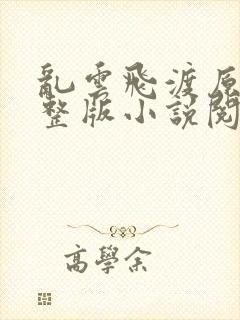 亂雲飛渡原
整版小說閱
高學余